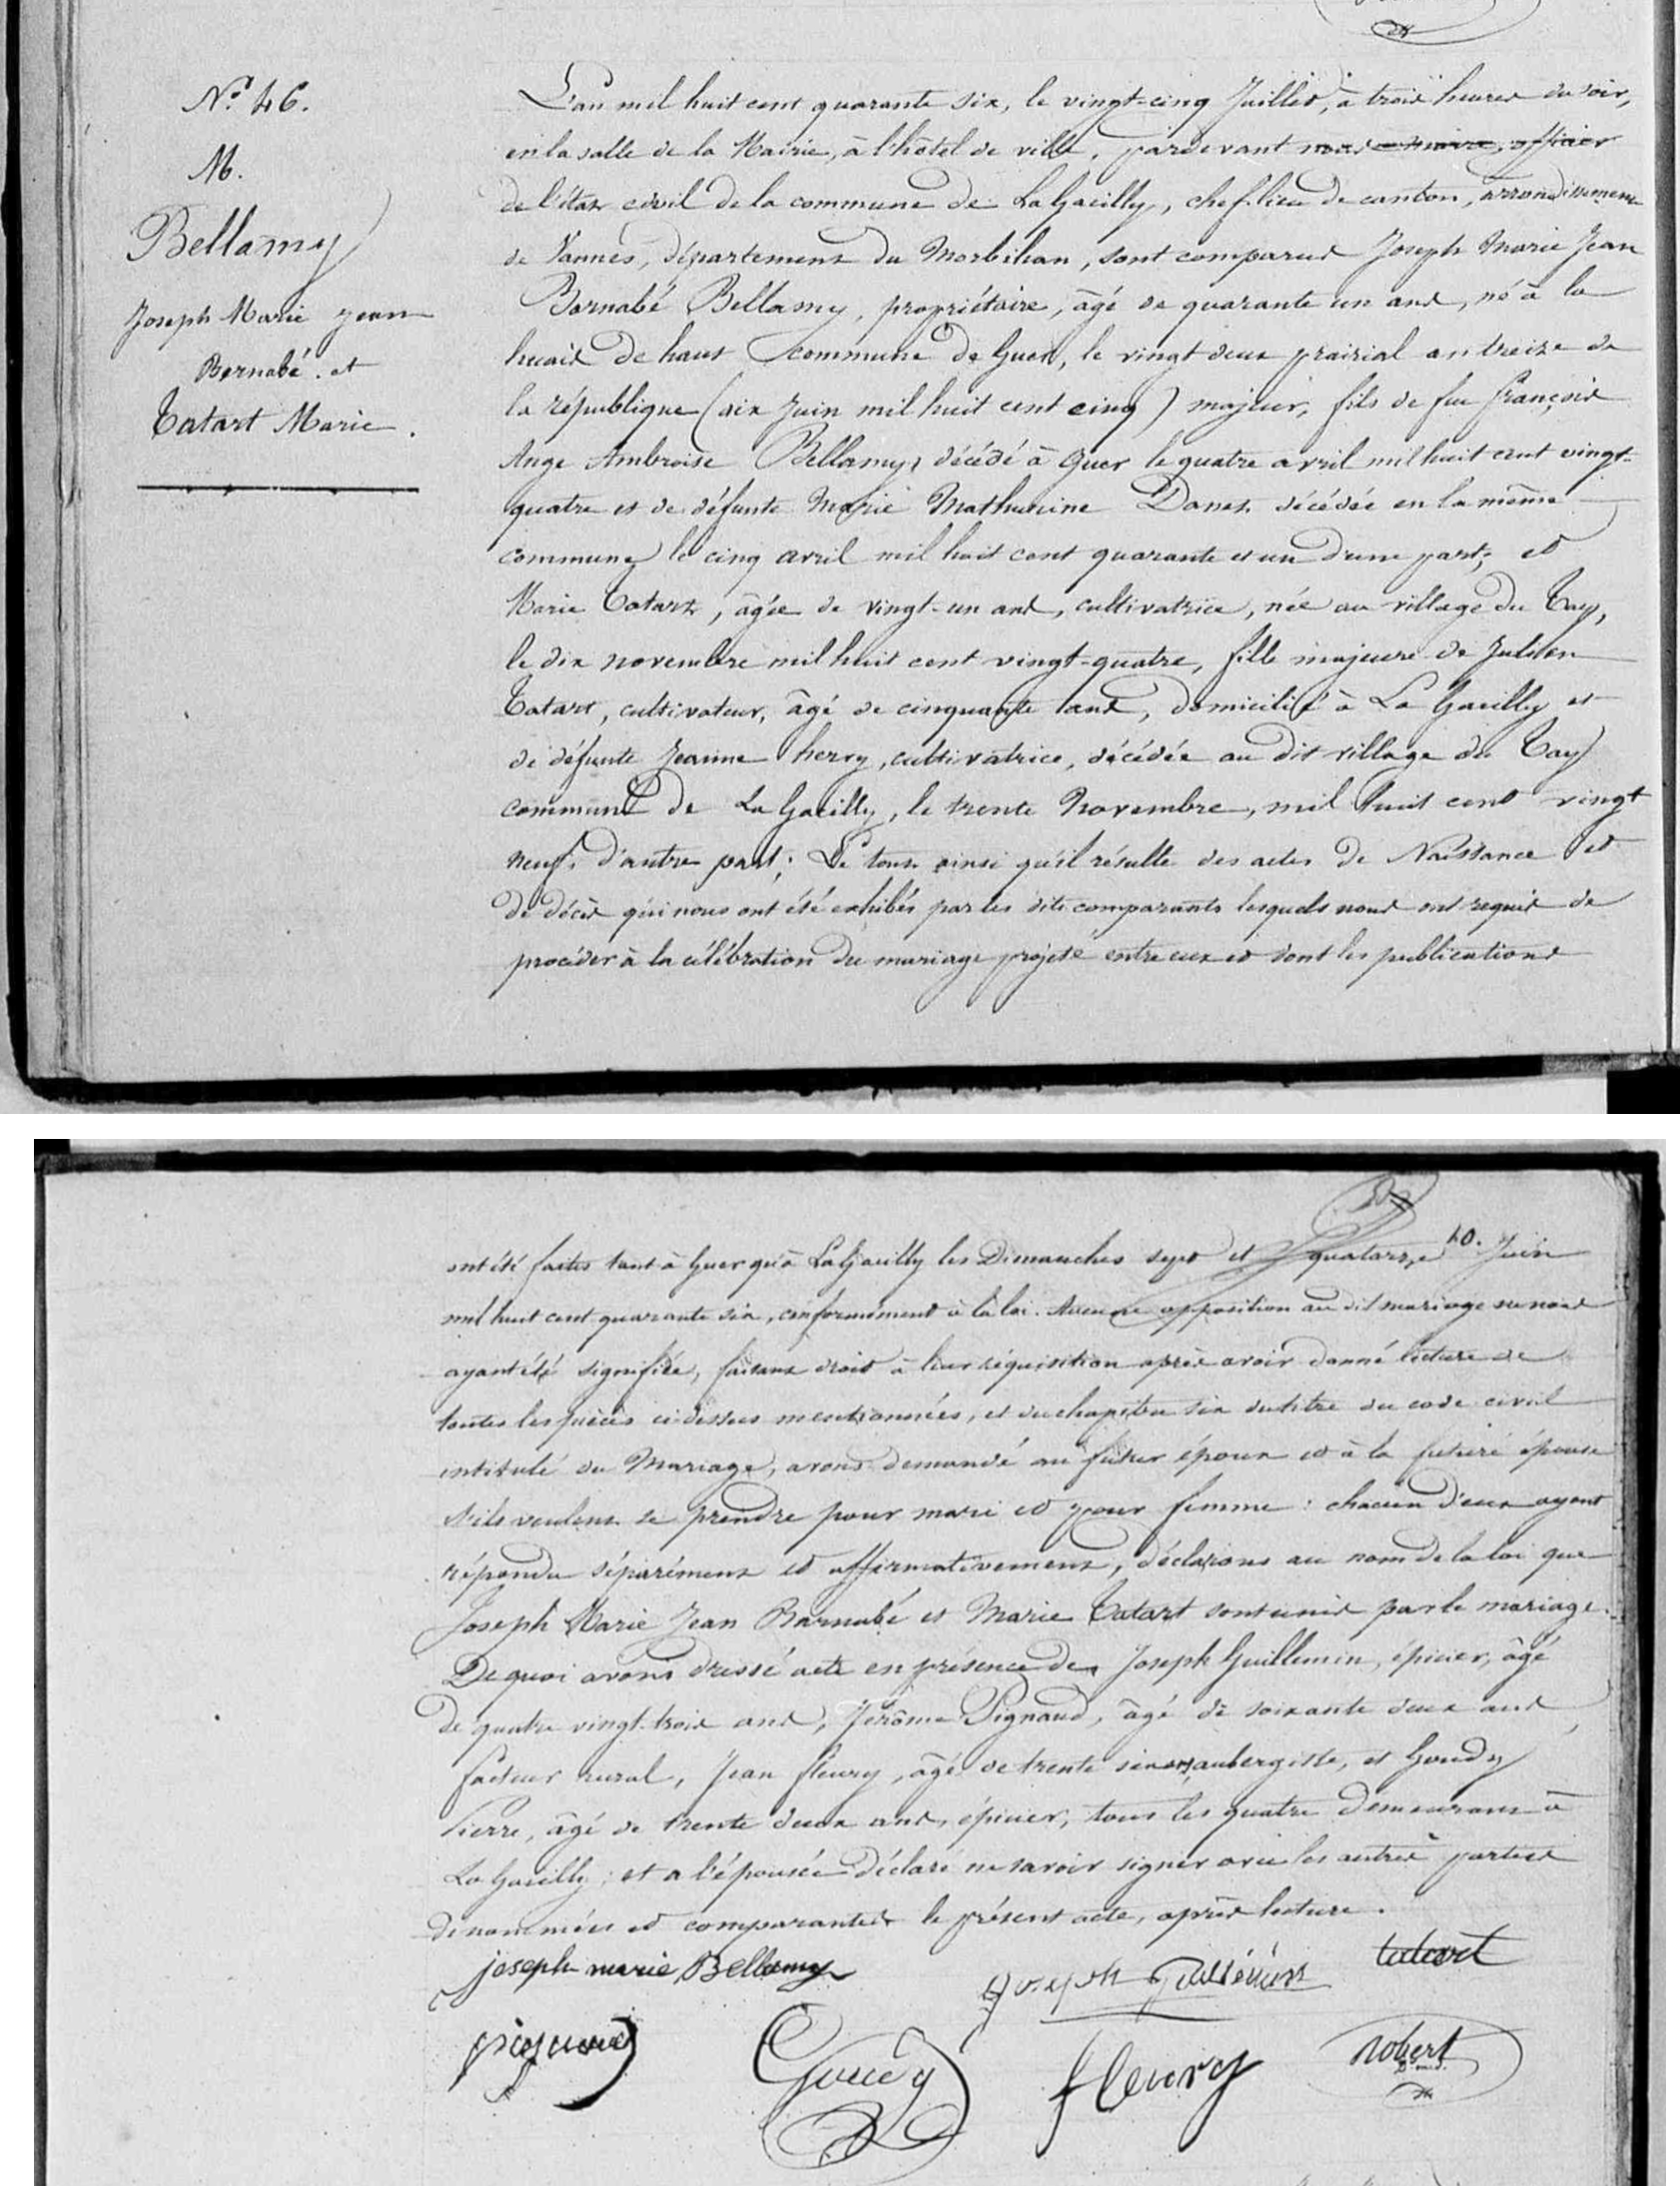 N° 46.
M.
Bellamy
Joseph Marie Jean
Barnabé. et
Tatart Marie.
L'an mil huit cent quarante six, le vingt-cinq Juillet, à trois heures du soir,
en la salle de la Mairie, à l'hôtel de ville, pardevant nous maire, officier
de l'état civil de la commune de La Gacilly, chef-lieu de canton, arrondissement
de Vannes, département du Morbihan, sont comparus Joseph Marie Jean
Barnabé Bellamy, propriétaire, âgé de quarante un ans, né à la
huais de haut commune de Guer, le vingt deux prairial an treize de
la république (dix Juin mil huit cent cinq) majeur, fils de feu françois
Ange Ambroise Bellamy, décédé à Guer le quatre avril mil huit cent vingt-
quatre et de défunte Marie Mathurine Danet décédée en la même
commune le cinq avril mil huit cent quarante et un d'une part; et
Marie Tatart, âgée de vingt-un ans, cultivatrice, née au village du Tay,
le dix novembre mil huit cent vingt-quatre, fille majeure de Julien
Tatart, cultivateur, âgé de cinquante ans, domicilié à La Gacilly et
de défunte Jeanne herry, cultivatrice, décédée au dit village du Tay
commune de La Gacilly, le trente Novembre, mil huit cent vingt
neuf, d'autre part; Le tout ainsi qu'il résulte des actes de Naissance et
de décès qui nous ont été exhibés par les dits comparants lesquels nous ont requis de
procéder à la célébration du mariage projeté entre eux et dont les publications
ont été faites tant à Guer qu'à La Gacilly les Dimanches sept et quatorze Juin
mil huit cent quarante six, conformément à la loi. Aucune opposition au dit mariage ne nous
ayant été signifiée, faisant droit à leur réquisition après avoir donné lecture de
toutes les pièces ci dessus mentionnées, et du chapitre six du titre du code civil
intitulé du Mariage, avons demandé au futur époux et à la future épouse
s'ils veulent se prendre pour mari et pour femme : chacun d'eux ayant
répondu séparément et affirmativement, déclarons au nom de la loi que
Joseph Marie Jean Barnabé et Marie Tatart sont unis par le mariage.
De quoi avons dressé acte en présence de Joseph Guillemin, épicier, âgé
de quatre vingt-trois ans, Jérôme Pignaud, âgé de soixante deux ans,
facteur rural, Jean fleury, âgé de trente six ans, aubergiste, et Goudy
Pierre, âgé de trente deux ans, épicier, tous les quatre demeurans à
La Gacilly; et a l'épousée déclaré ne savoir signer avec les autres parties
dénommées et comparantes le présent acte, après lecture.
joseph marie Bellamy
Joseph Guillemin
tatart
pignaud
Goudy
fleury
robert